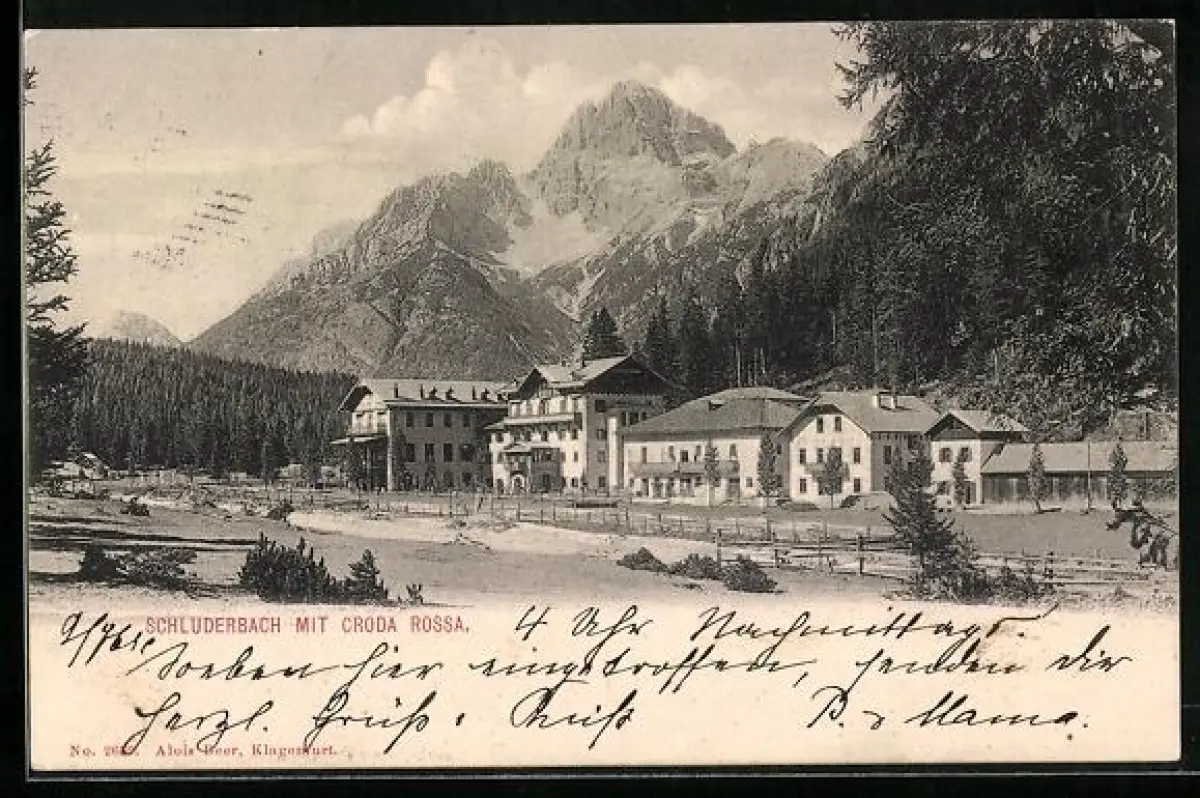 SCHLUDERBACH MIT CRODA ROSSA.
4 Uhr Nachmittags.
Soeben hier eingetroffen, senden dir
herzl. Grüß u. Kuß B. u Mama.
No. Alois Beer, Klagenfurt.